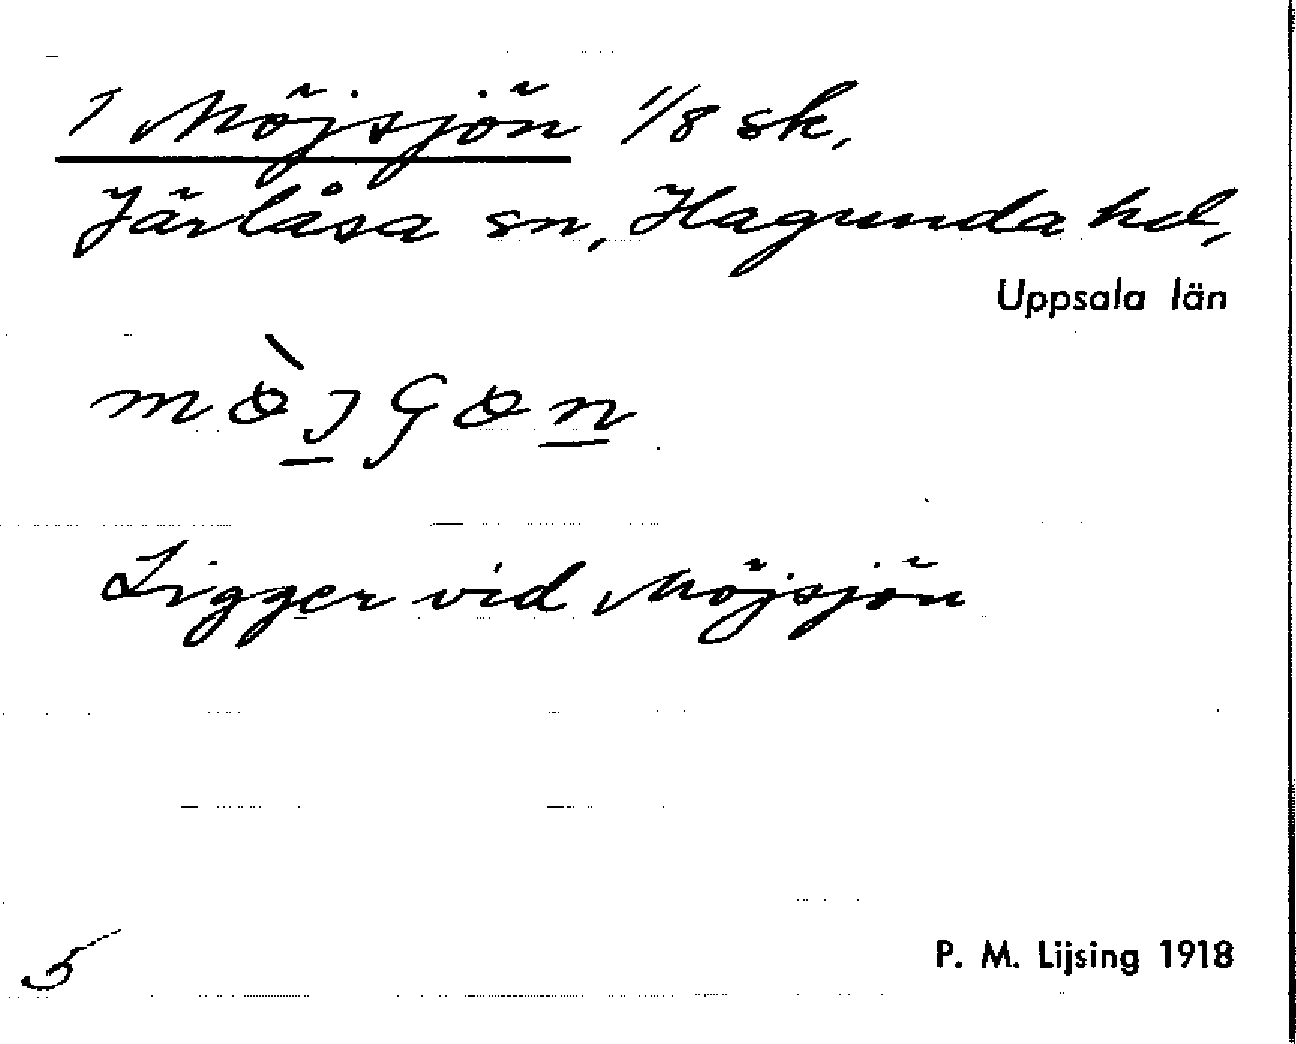 1 Möjsjön 1/8 sk,
Järlåsa sn, Hagunda hd,
Uppsala län
Ligger vid Möjsjön
5
P. M. Lijsing 1918